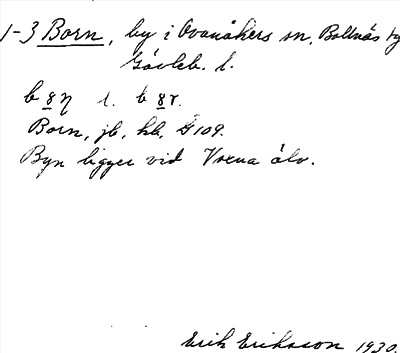 1-3 Born, by i Ovanåkers sn, Bollnäs
Gävleb. l.
b 8 η l. b 8 r.
Born, jb, hb, G 109.
Byn ligger vid Voxna älv.
Erik Eriksson 1930.